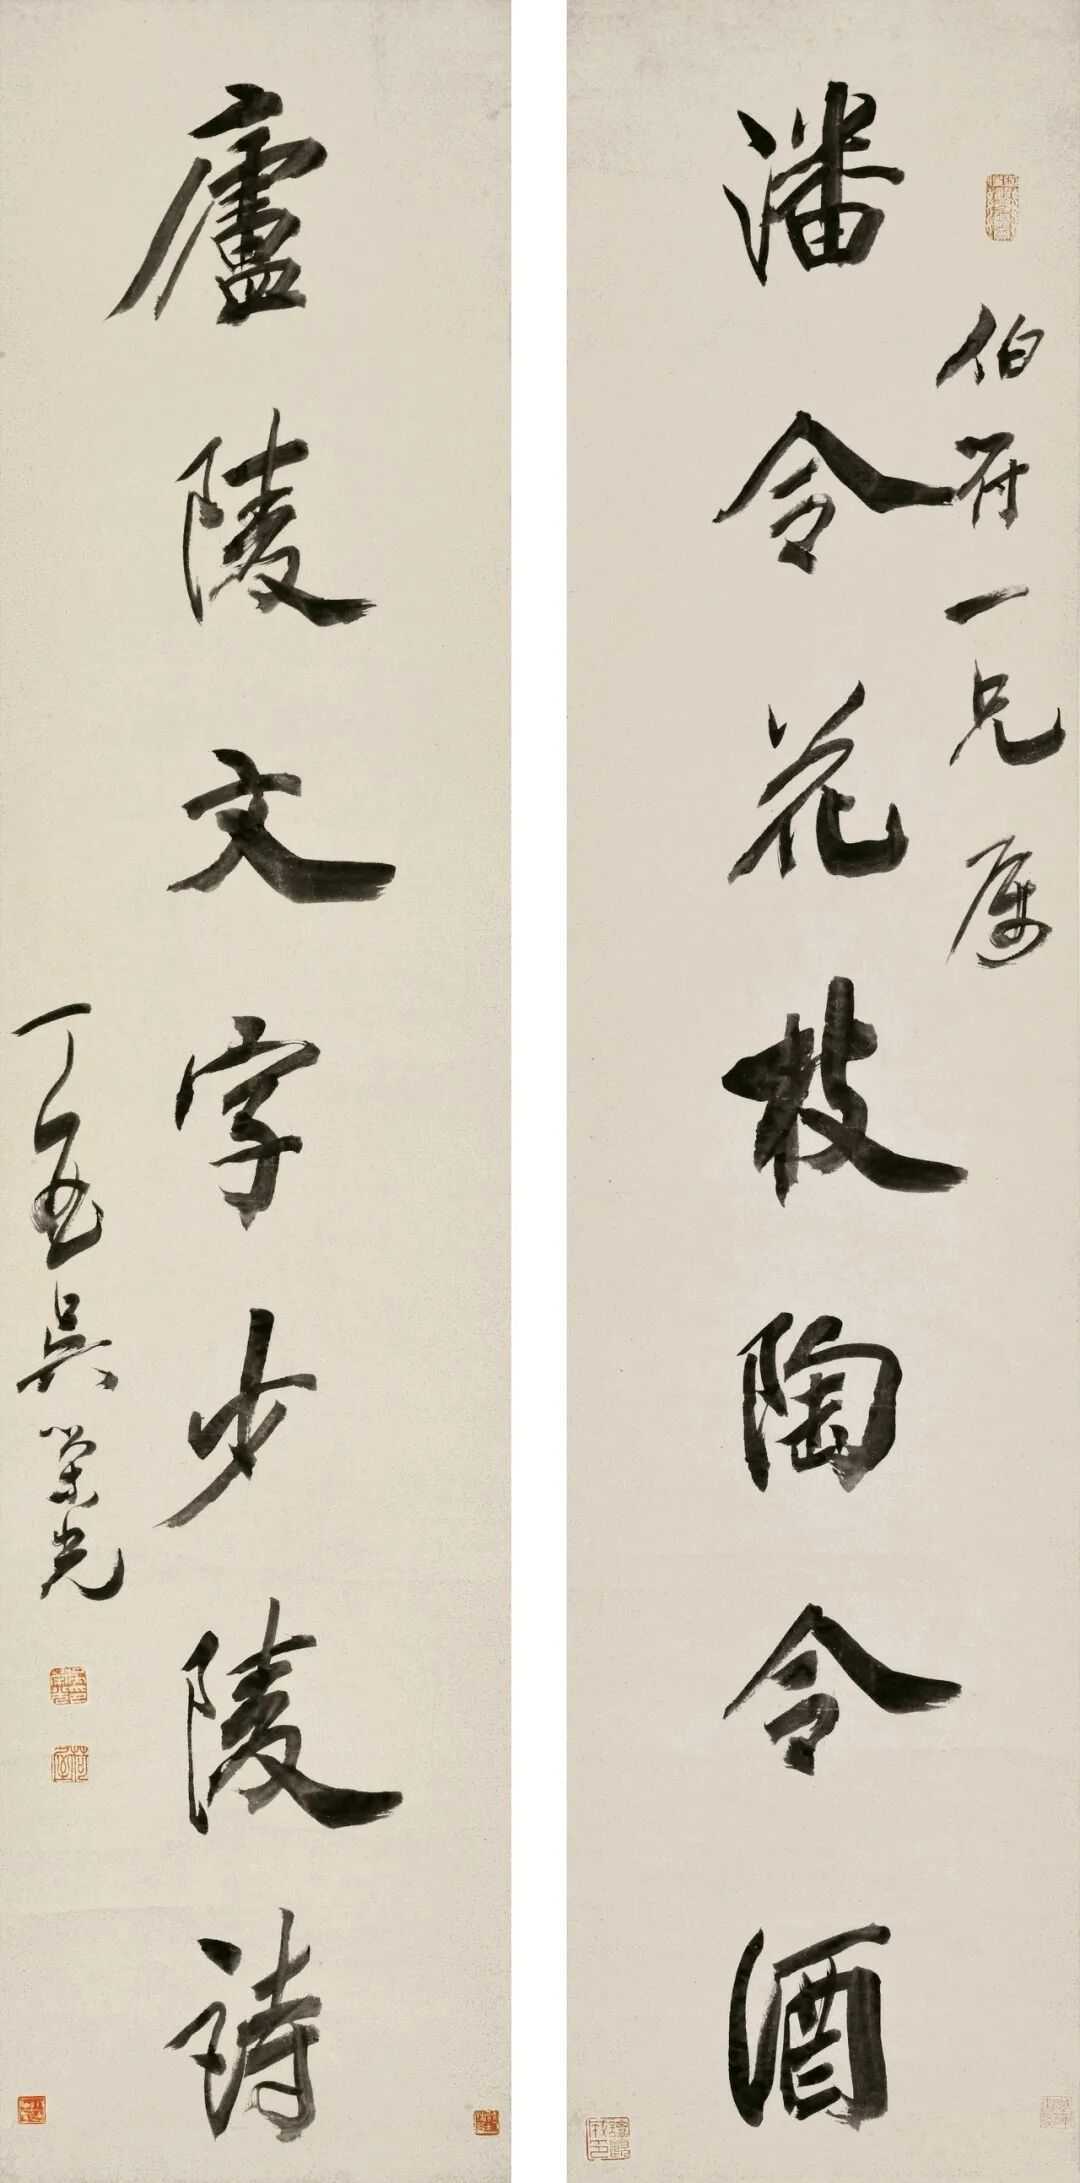 伯符一兄属
潘令花枝陶令酒
廬陵文字少陵詩
丁 吳榮光